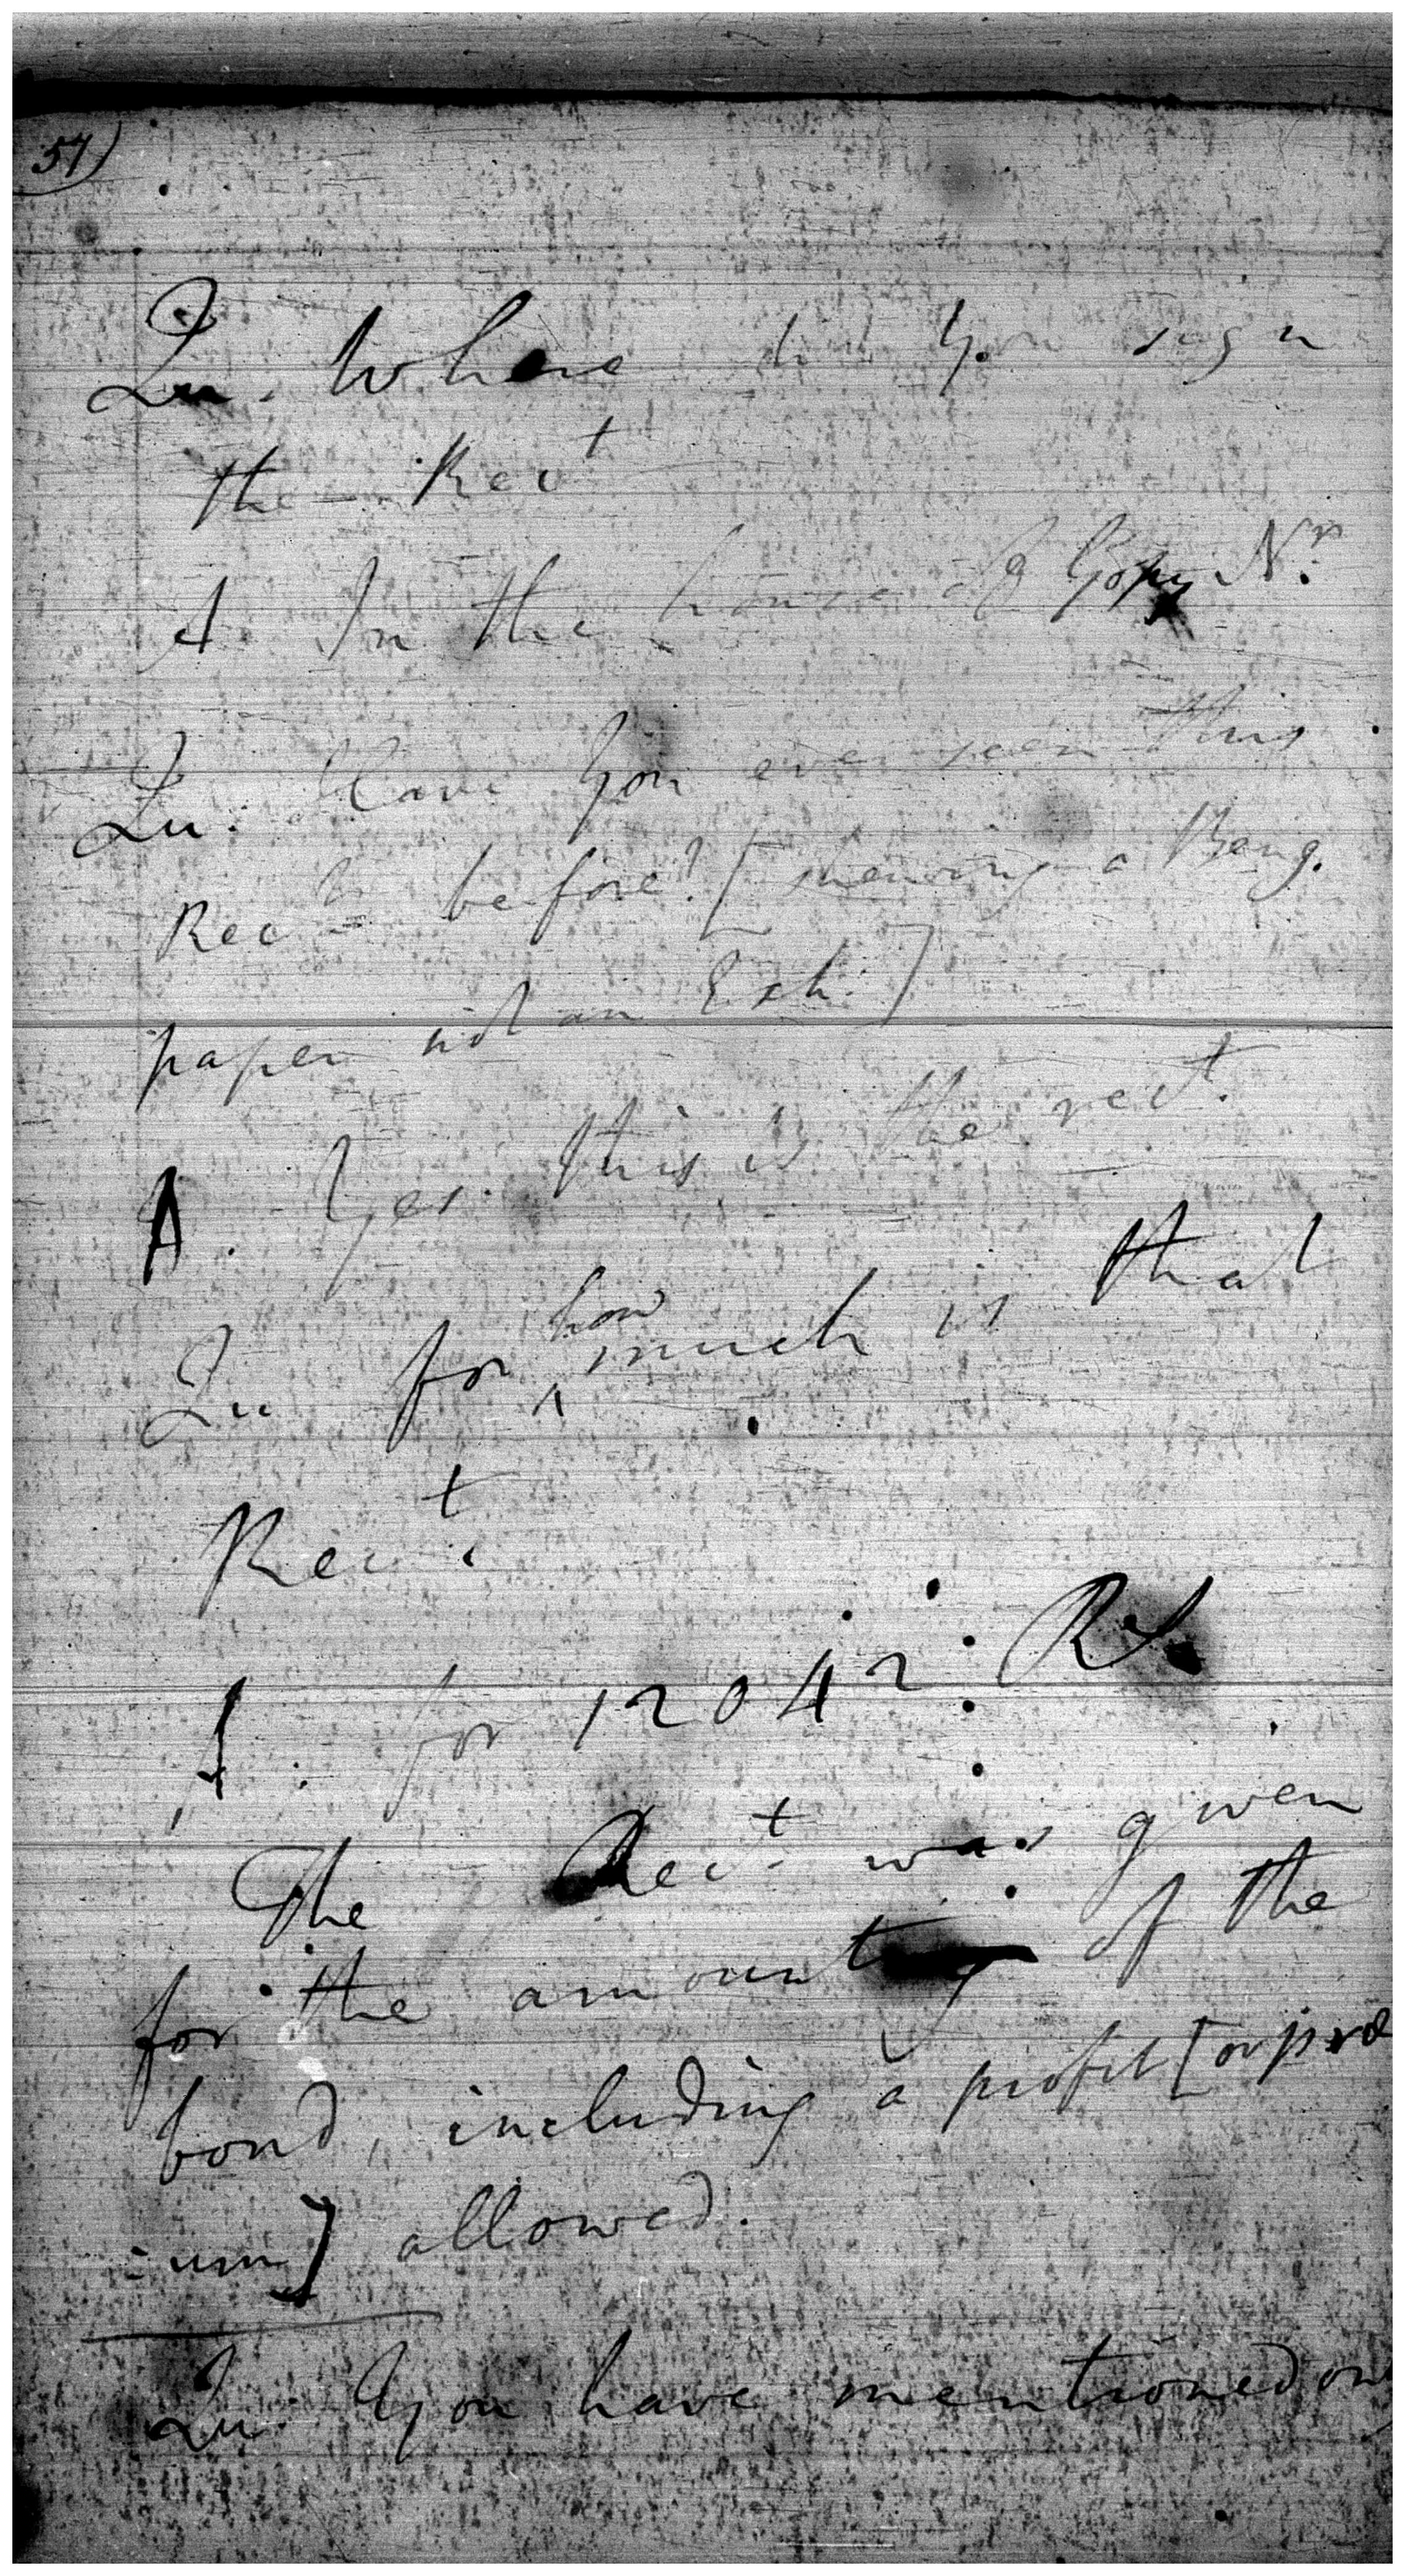 57)
Qu. Where did you sign
the Rect
A. In the house of Gopy Nr.
Qu. Have you ever seen this
Rect before? [shewing a Beng.
paper not an Exh.]
A. Yes. this is the rect.
Qu for how much is that
Rect.
A. for 12042: Rs
The Rect was given
for the amount of the
bond, including a profit [or prē
:um] allowed.
Qu. You have mentioned